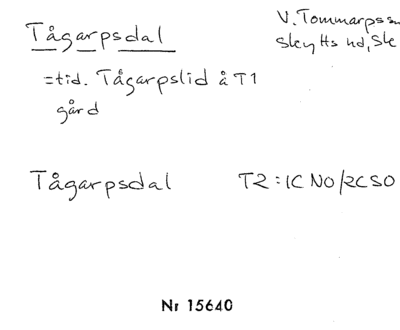 Tågarpsdal
V. Tommarps sn
Skytts hd, Sk
=tid. Tågarpslid å T1
gård
Tågarpsdal T2:1C NO/2C SO
Nr 15640